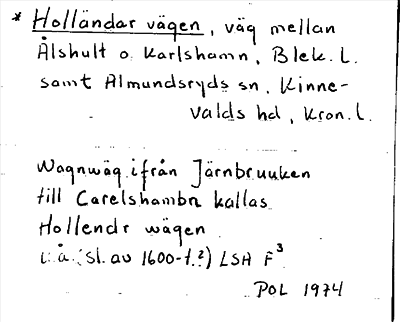 * Holländar vägen, väg mellan
Ålshult o. Karlshamn, Blek. l.
samt Almundsryds sn, Kinne-
valds hd, Kron. l.
Wagnwäg ifrån Järnbruuken
till Carelshambn kallas
Hollendr wägen
u.å. (sl. av 1600-t.?) LSA F³
POL 1974